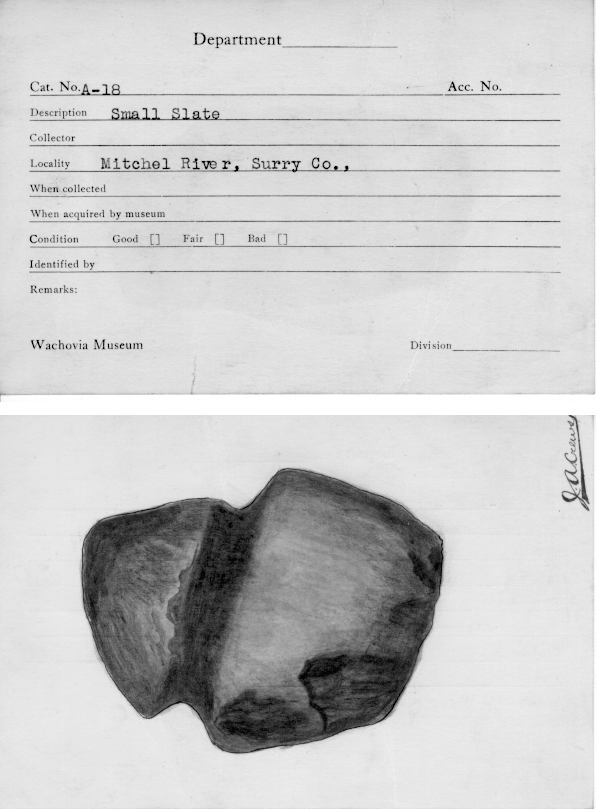 Department
Cat. No. A-18 Acc. No.
Description Small Slate
Collector
Locality Mitchel River, Surry Co.,
When collected
When acquired by museum
Condition Good [] Fair [] Bad []
Identified by
Remarks:
Wachovia Museum Division
J.A. Crews